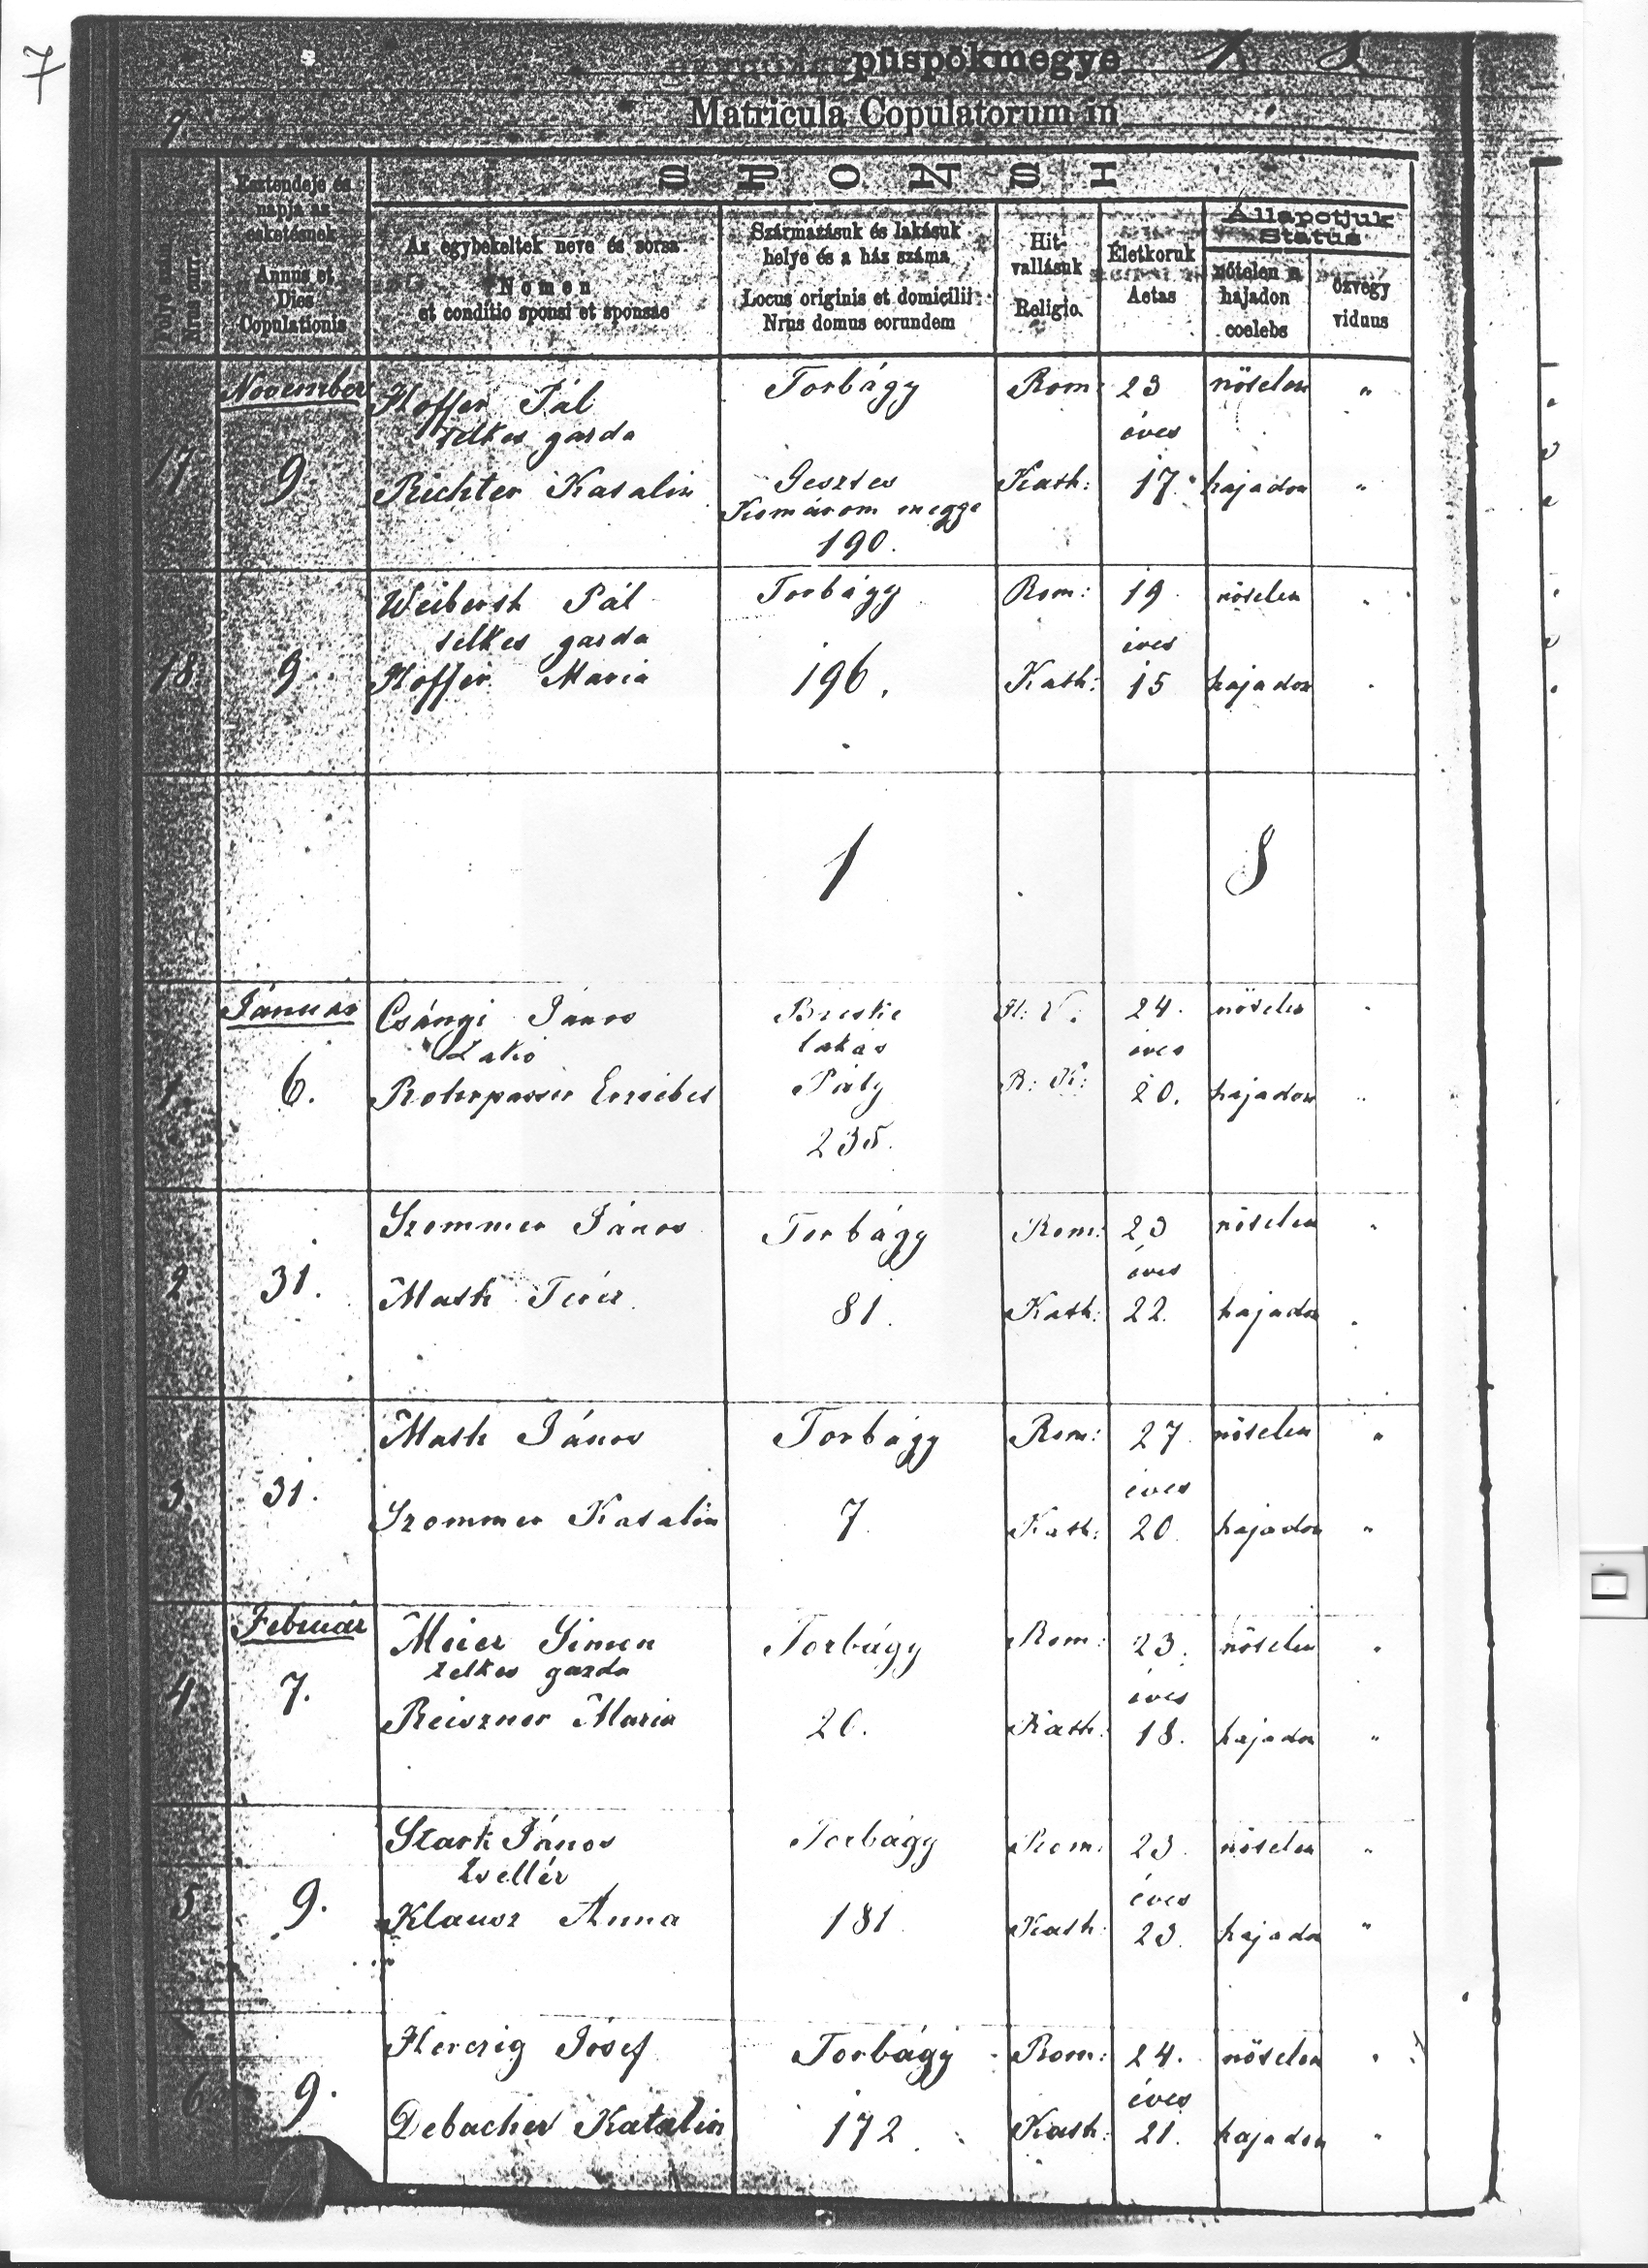 7
püspökmegye
Matricula Copulatorum in
SPONSI
Esztendeje és
napja az
esketésnek
Annus et
Dies
Copulationis
Az egybekeltek neve és sorsa
Nomen
et conditio sponsi et sponsae
Származásuk és lakásuk
helye és a ház száma
Locus originis et domicilii
Nrus domus eorundem
Hit-
vallásuk
Religio.
Életkoruk
Aetas
Állapotjuk
Status
nőtelen a
hajadon
coelebs
özvegy
viduus
November Hoffer Pál Torbágy Rom: 23 nőtelen "
telkes gazda éves
17 9 Richter Katalin Gesztes Kath: 17. hajadon "
Komárom megye
190.
Weiberth Pál Torbágy Rom: 19. nőtelen "
telkes gazda éves
18. 9 Hoffer Maria 196. Kath: 15 hajadon "
1 8
Január Csángi János H: V. 24. nőtelen "
lakás éves
1. 6. Erzsébet Páty R: K: 20. hajadon "
235.
Szommer János Torbágy Rom: 23 nőtelen "
éves
2. 31. Math Teréz 81. Kath: 22. hajadon "
Math János Torbágy Rom: 27. nőtelen "
éves
3. 31. Szommer Katalin 7. Kath: 20. hajadon "
Február Meier Simon Torbágy Rom: 23. nőtelen "
telkes gazda éves
4 7. Reiszner Maria Kath: 18. hajadon "
Stark János Torbágy Rom: 23. nőtelen "
zsellér éves
5 9. Klausz Anna 181. Kath: 23. hajadon "
Herczig Jósef Torbágy Rom: 24. nőtelen "
éves
6 9. Debacher Katalin 172. Kath: 21. hajadon "